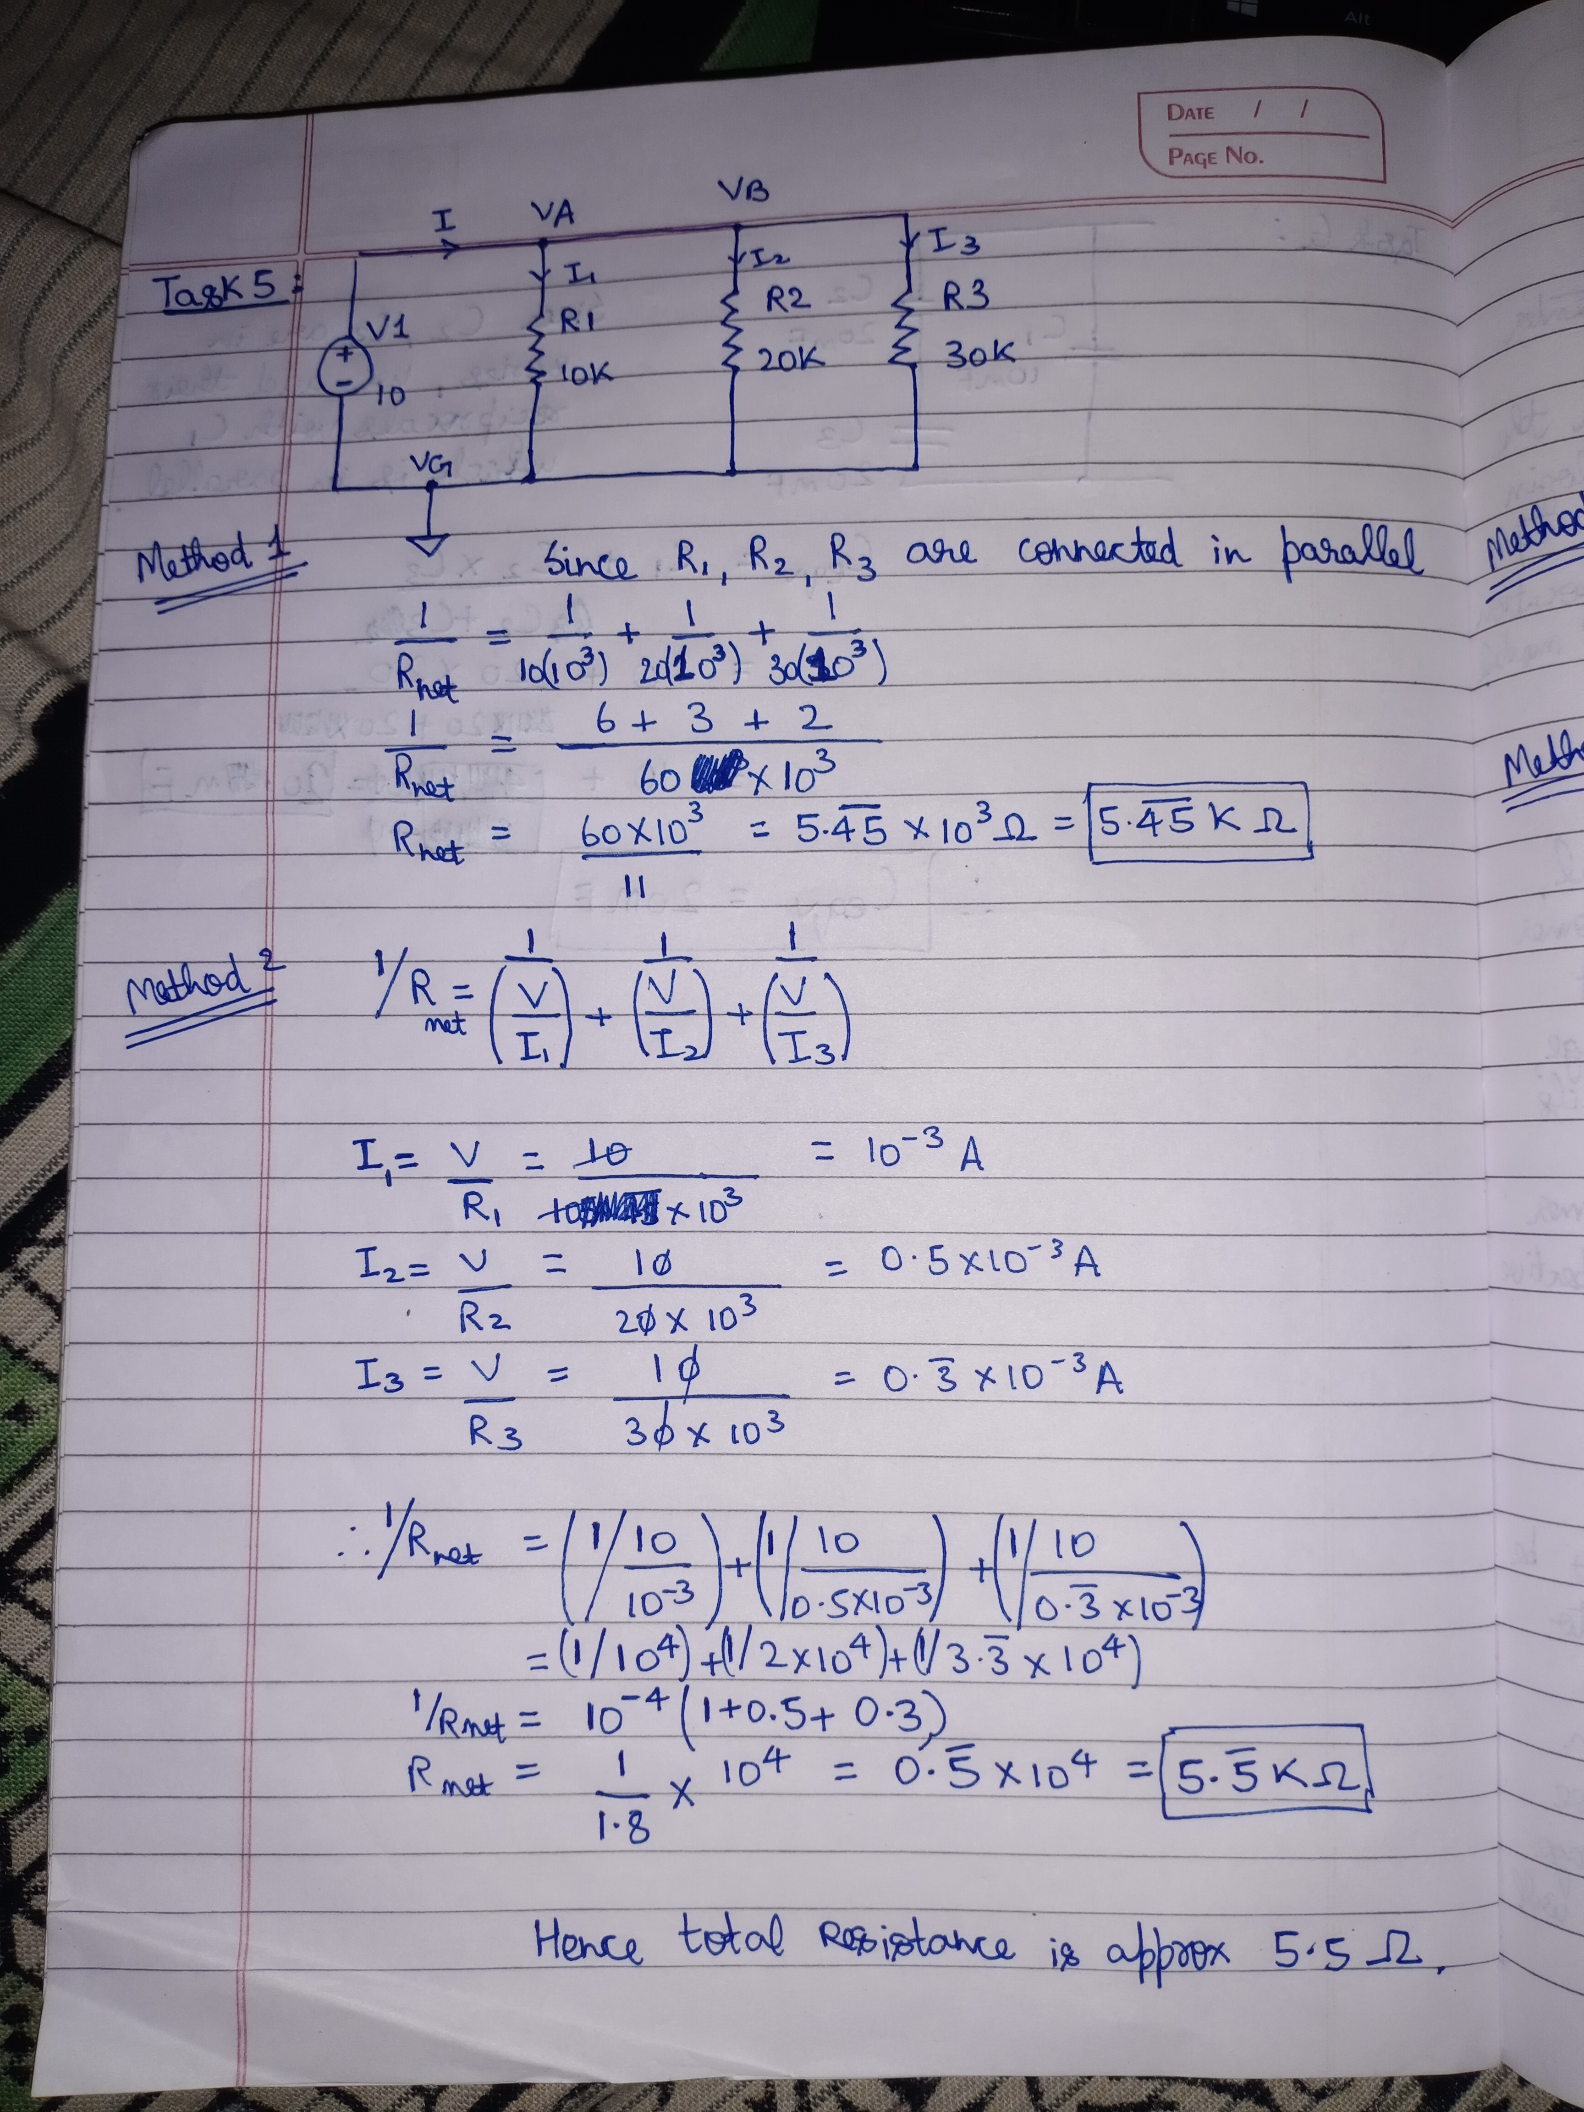 Alt
DATE / /
PAGE No.
Task 5:
I VA VB
I₁ I₂ I3
V1 R1 R2 R3
+
- 10 10K 20K 30K
VG
Method 1 Since R₁, R₂, R₃ are connected in parallel
1/Rnet = 1/10(10³) + 1/20(10³) + 1/30(10³)
1/Rnet = 6 + 3 + 2 / 60 × 10³
Rnet = 60×10³/11 = 5.4̅5̅ × 10³ Ω = 5.4̅5̅ K Ω
Method 2 1/Rnet = 1/(V/I₁) + 1/(V/I₂) + 1/(V/I3)
I₁ = V/R₁ = 10/10 × 10³ = 10⁻³ A
I₂ = V/R2 = 10/20 × 10³ = 0.5×10⁻³ A
I3 = V/R3 = 10/30 × 10³ = 0.3̅ ×10⁻³ A
∴ 1/Rnet = (1/10/10⁻³) + (1/10/0.5×10⁻³) + (1/10/0.3̅ ×10⁻³)
= (1/10⁴) + (1/2×10⁴) + (1/3.3̅ × 10⁴)
1/Rnet = 10⁻⁴ (1+0.5+ 0.3)
Rnet = 1/1.8 × 10⁴ = 0.5̅ ×10⁴ = 5.5̅ K Ω
Hence total Resistance is approx 5.5 Ω.